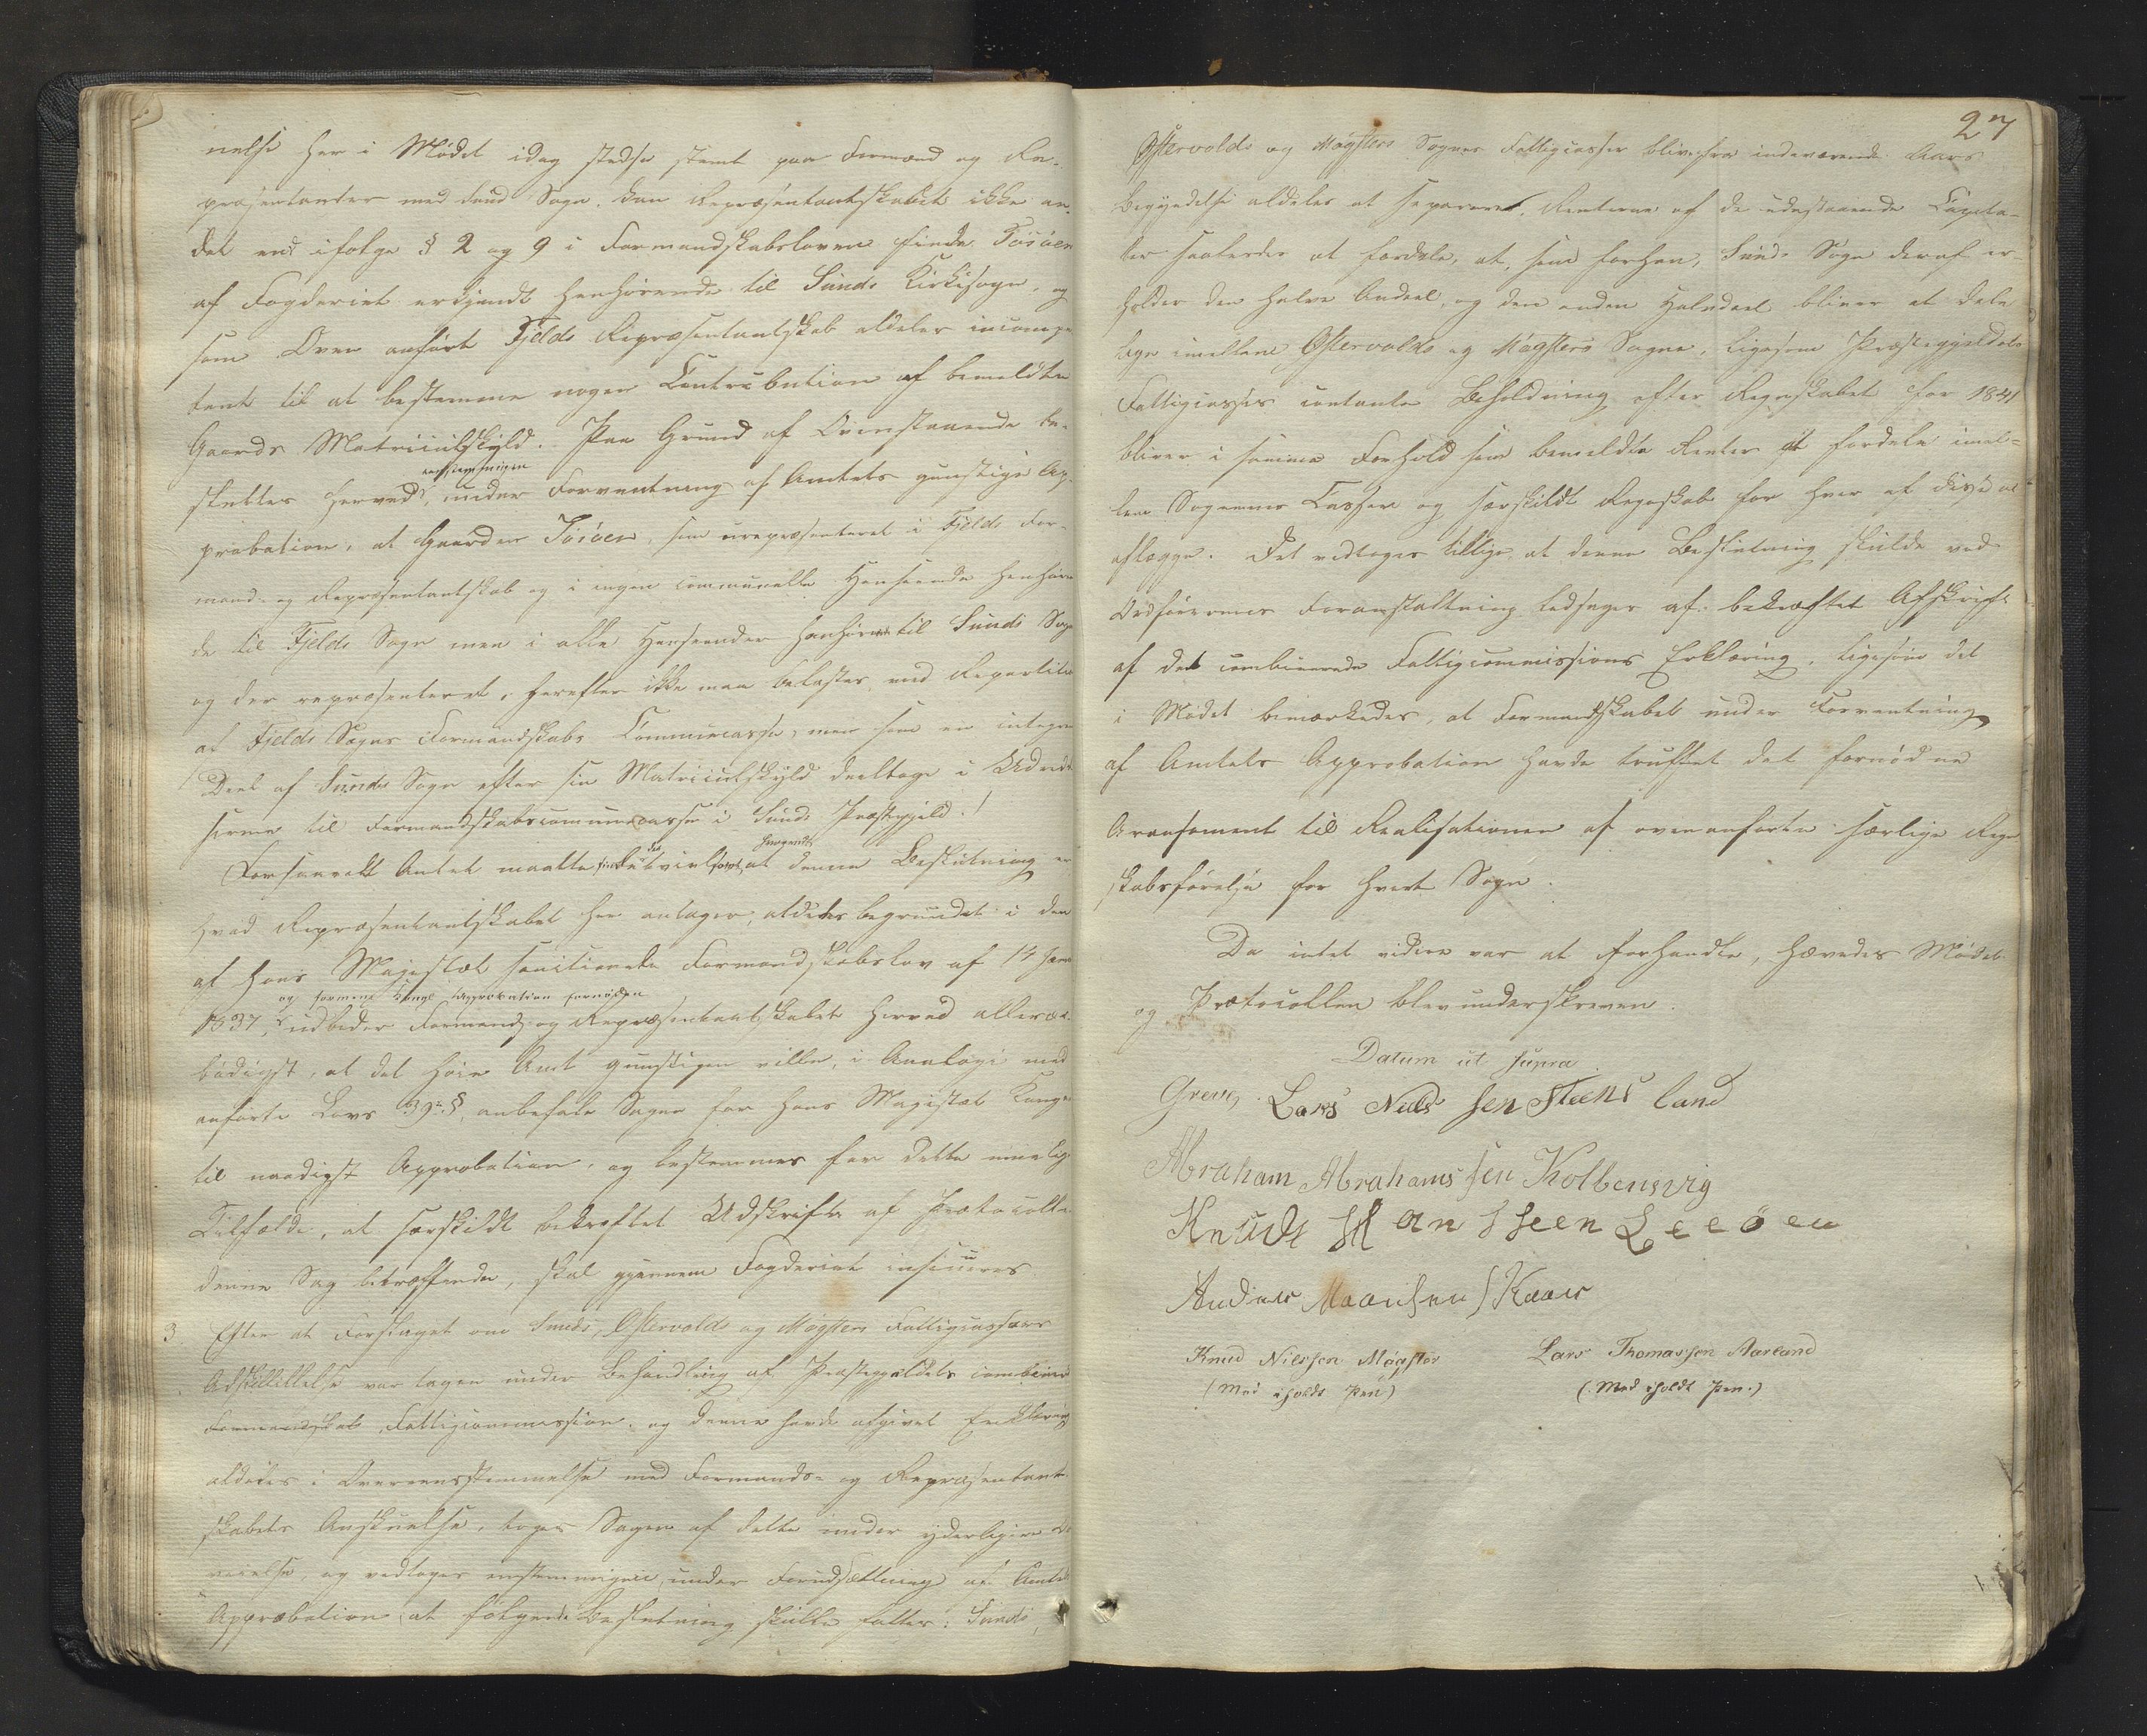 nelse her i Mødet idag stedse stemt paa Formænd og Re-
præsentanter med Sund Sogn, kan Repræsentantskabet ikke an-
det end ifølge § 2 og 9 i Formandskabsloven finde Tösöen
af Fogderiet erkjendt henhørende til Sunds Kirkesogn, og
som Oven anført Fjelds Repræsentantskab aldeles incompe
tent til at bestemme nogen Contribution af bemeldte
Gaards Matriculskyld. Paa Grund af Ovenstaaende be-
eenstemmigen
sluttes herved, under Forventning af Amtets gunstige Ap-
probation, at Gaarden Tösöen, som urepræsenteret i Fjelds For-
mand- og Repræsentantskab og i ingen communelle Henseende henhøren
de til Fjelds Sogn men i alle Henseender henhørende til Sunds Sogn
og der repræsenteret, herefter ikke maa belastes med Repartition
af Fjelds Sogns Formandskabs Communecasse, men som en integre
Deel af Sunds Sogn efter sin Matriculskyld deeltage i Udred
serne til Formandskabscommunecasse i Sunds Præstegjeld!
Forsaavidt Amtet maatte finde det tvivlsomt, at denne Beslutning er
hvad Repræsentantskabet her antager, aldeles begrundet i den
af Hans Majestæt sanctionerte Formandskabslov af 14 Janr
og formene Kongl Approbation fornøden
1837, udbeder Formænd- og Repræsentantskabet herved allerær-
bødigst, at det høie Amt gunstigen ville, i Analogi med
anførte Lovs 39te §, anbefale Sagen for Hans Majestæt Konge
til naadigst Approbation, og bestemmes for dette muelig
Tilfælde, at særskildt bekræftet Udskrift af Protocolle
denne Sag betræffende, skal gjennem Fogderiet insinueres
3. Efter at Forslaget om Sunds, Østervolds og Møgsters Fattigcassers
Adskillelse var tagen under Behandling af Præstegjeldets combinere
Formandskab Fattigcommission, og denne havde afgivet Erklæring
aldeles i Overeensstemmelse med Formands- og Repræsentant-
skabets Anskuelse, toges Sagen af dette under yderligere O
veielse, og vedtoges enstemmigen, under Forudsættning af Amtets
Approbation, at følgende Beslutning skulle fattes: Sunds,
27
Østervolds og Møgsters Sognes Fattigcasser blive fra indeværende Aars
Begyndelse aldeles at separere. Renterne af de udestaaende Capita-
ler saaledes at fordele, at, som forhen, Sunds Sogn deraf er-
holder den halve Andeel, og den anden Halvdeel bliver at dele
lige imellem Østervolds og Møgsters Sogne, ligesom Præstegjeldets
Fattigcasses contante Beholdning efter Regnskabet for 1841
bliver i samme Forhold som bemeldte Renter at fordele imel-
lem Sognenes Casser og særskildt Regnskab for hver af disse at
aflægge. Det vedtages tillige at denne Beslutning skulde ved
Ordførernes Foranstaltning ledsages af bekræftet Afskrift
af det combinerede Fattigcommissions Erklæring, ligesom det
i Mødet bemærkedes, at Formandskabet under Forventning
af Amtets Approbation havde truffet det fornødne
Aransement til Realisationen af ovenanførte særlige Regn
skabsførelse for hvert Sogn.
Da intet videre var at forhandle, hævedes Mødet
og Protocollen blev underskreven.
Datum ut supra
Greve, Lars Niels sen Steens land
Abraham Abrahams sen Kolbensvig
Knudt Hansseen Leeöen
Anders Moensen Skaar
Knud Nilssen Møgster Lars Thomassen Aarland
(Med iholdt Pen) (Med iholdt Pen.)